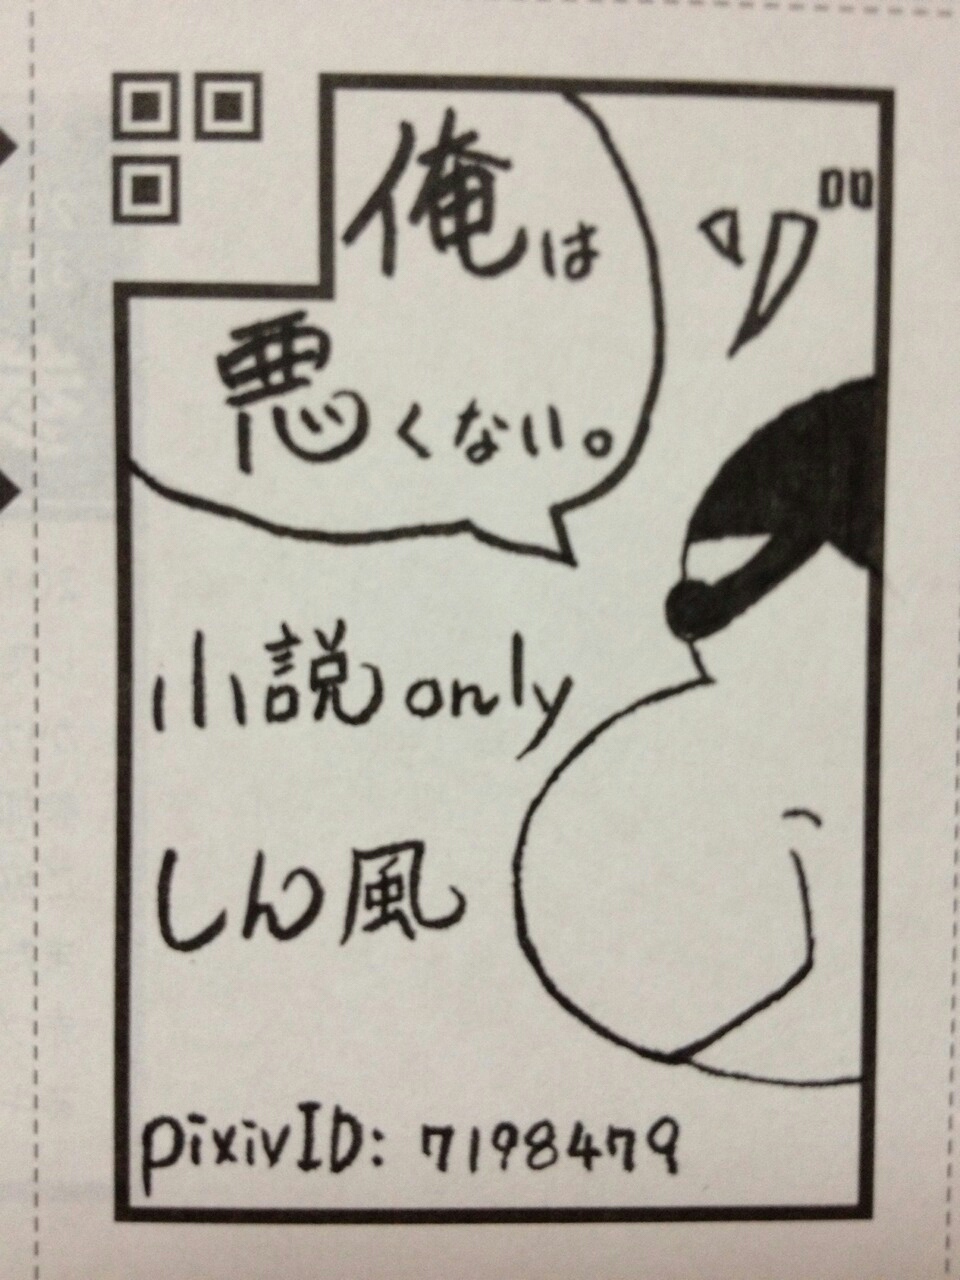 俺は
悪くない。
小説only
しん風
pixivID: 7198479